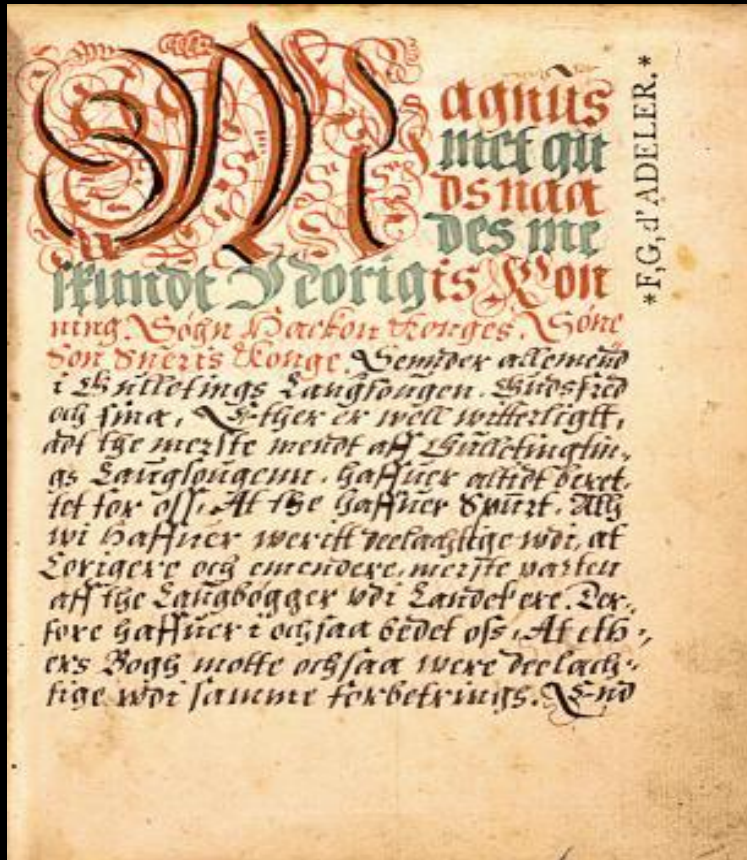 Magnus
met gu
ds naa
des me
skundt Norigis Kon
ning. Søhn Hackon Konges. Søne
Søn Sueris Konge. Sennder allemend
i Gulletings Laugsougen. Gudsfred
och sina. Ether er well witterligtt,
adt the merste mendt aff Gulletingtin,
gs Laugsougenn. haffuer altidt beret,
tet for oss. At the haffuer Spurt. Alh
wi haffuer weritt deelachtige wdi, at
Corigere och emendere, merste parten
aff the Laugbøgger vdi Landet ere. Der,
fore haffuer i ochsaa bedet oss. At eth,
ers Bogh motte ochsaa were deelach,
tige wdi samme forbetrings. End
*F,G,d'ADELER.*